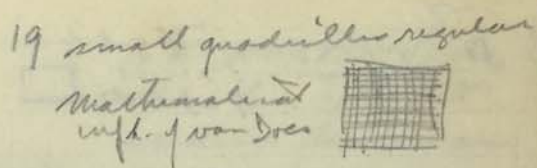 19 small quadrilles regular
Mathematical
infl. of van Does